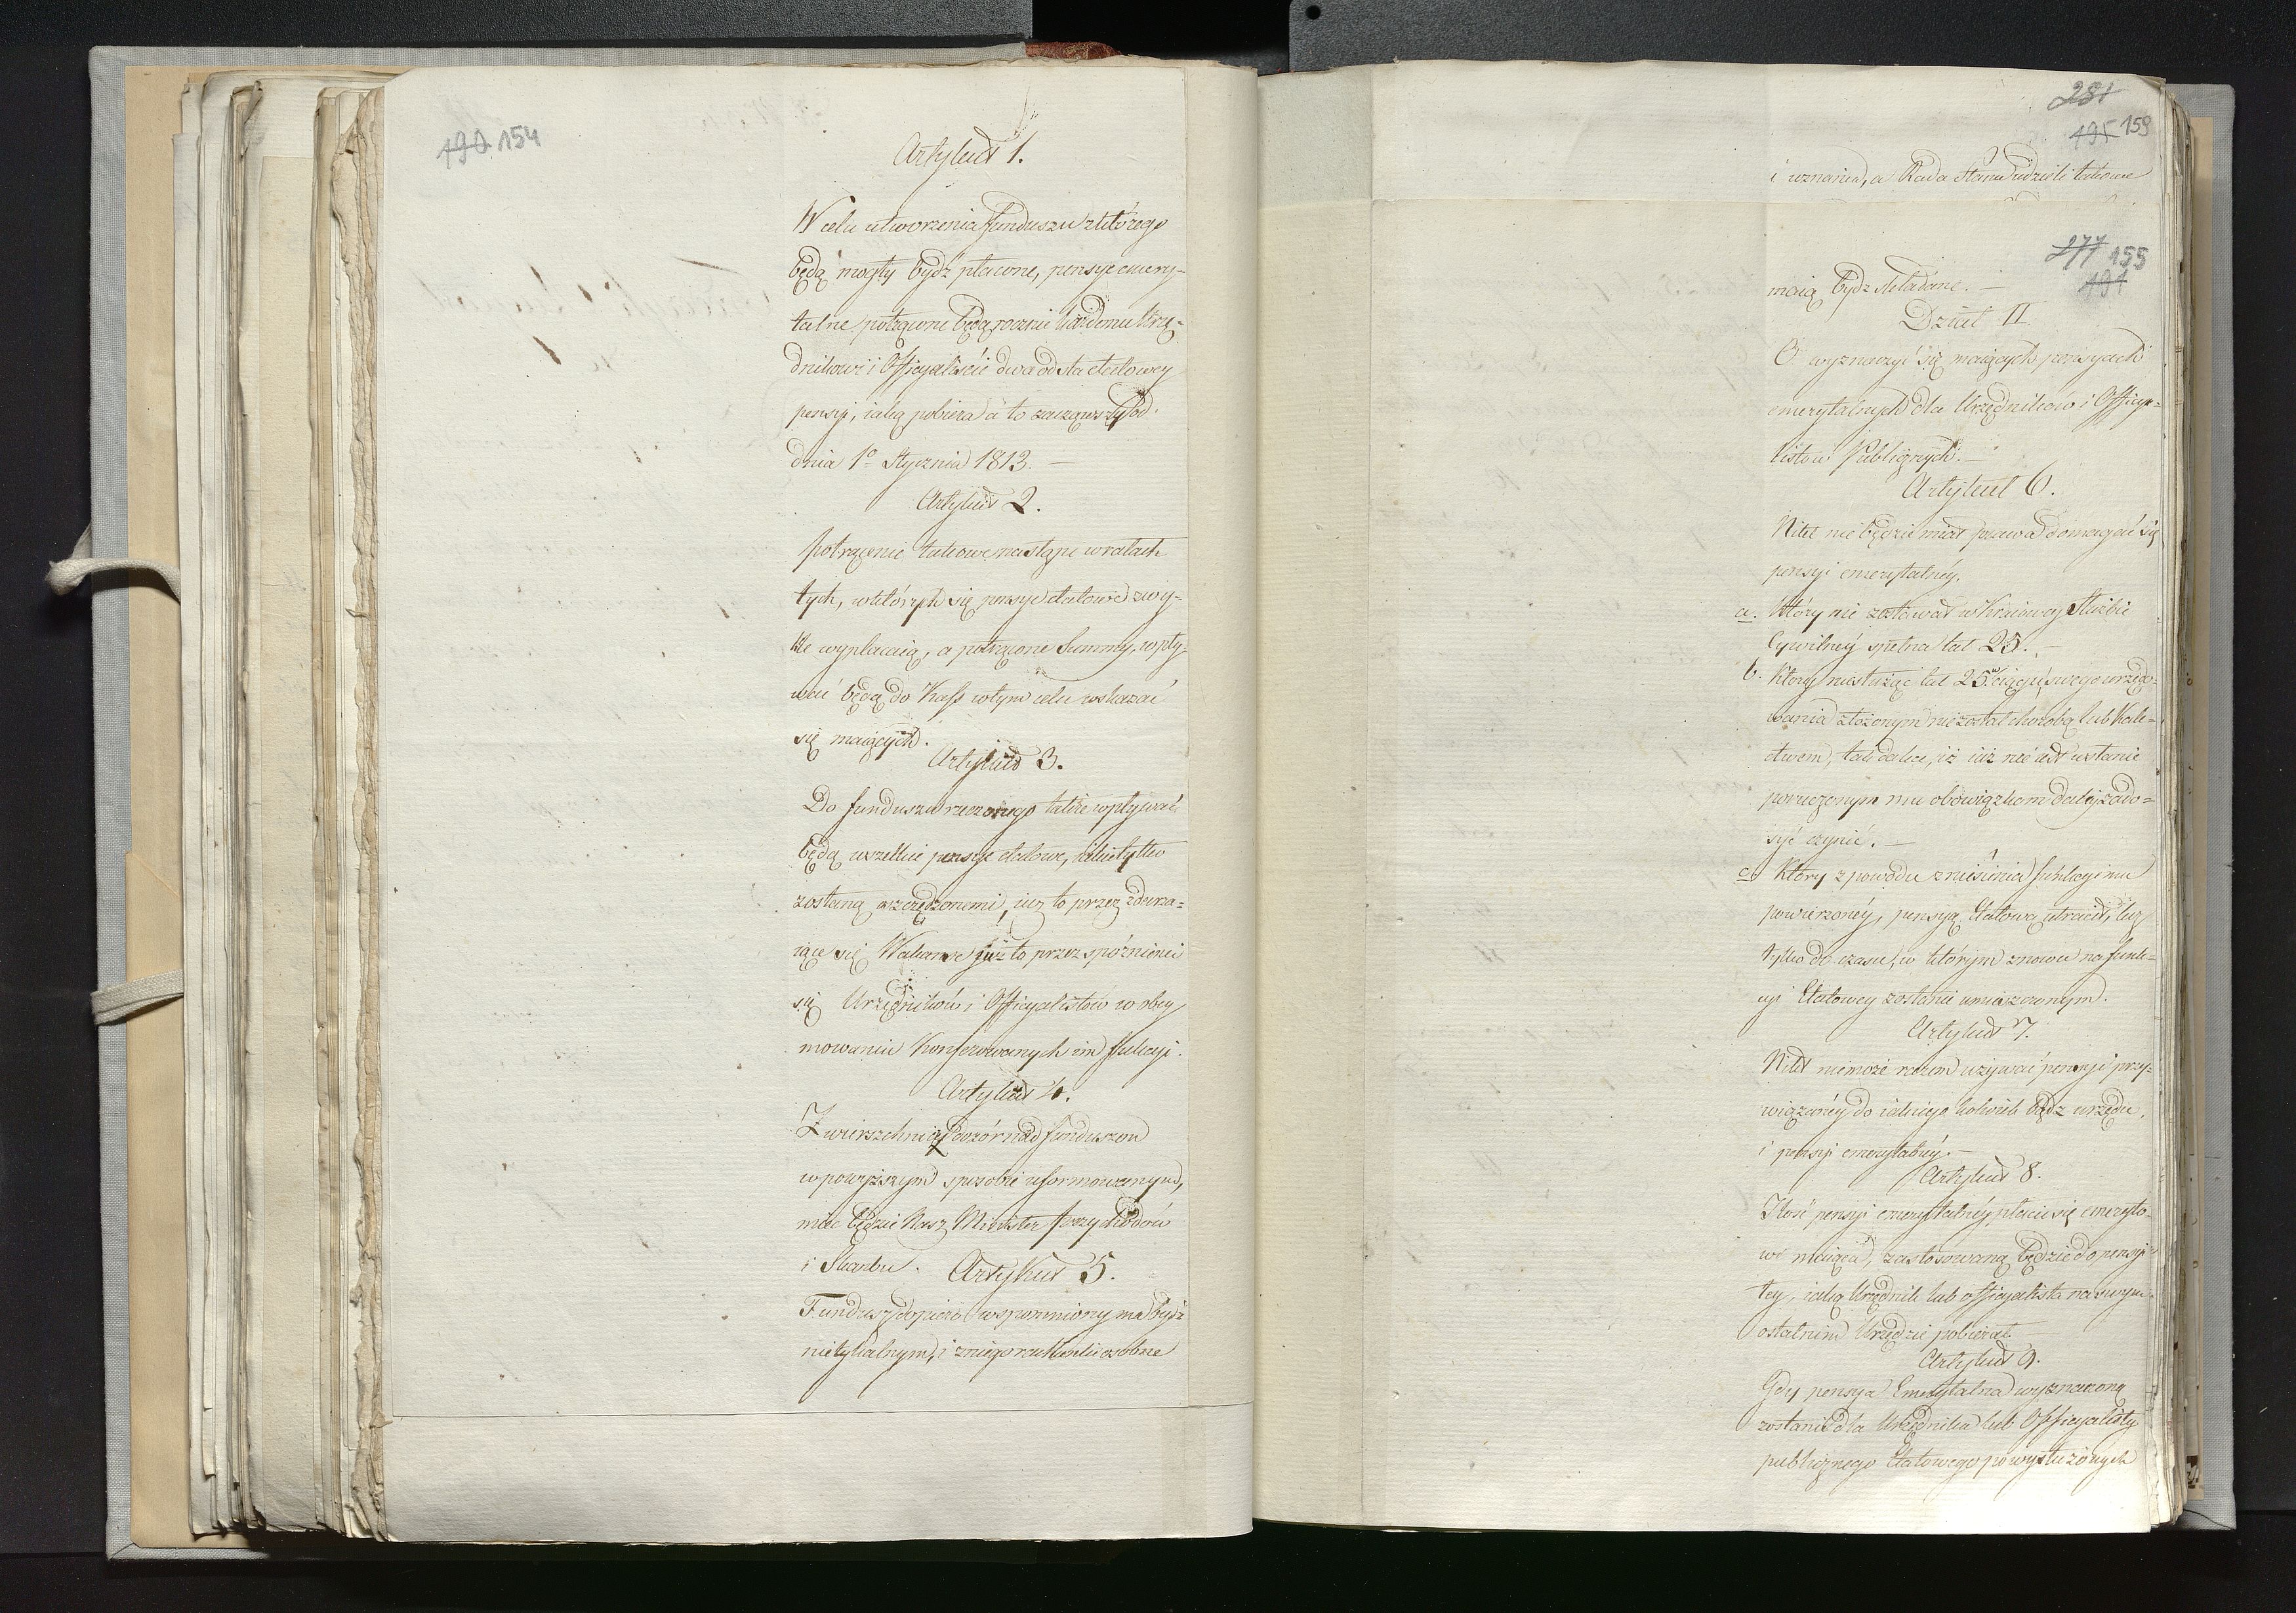 190 154
Artykuł 1.
W celu utworzenia funduszu z którego
będą mogły bydź płacone, pensye emery-
talne potrącone będą rocznie każdemu Urzę-
dnikowi i Officyaliście dwa od sta etatowey
pensyi, iaką pobiera a to zacząwszy od
dnia 1o Stycznia 1813. —
Artykuł 2.
potrącenie takowe nastąpi w ratach
tych, w których się pensye etatowe zwy-
kle wypłacaią, a potrącone Summy, wpły-
wać będą do Kass w tym celu wskazać
się maiących.
Artykuł 3.
Do funduszu rzeczonego także wpływać
będą wszelkie pensye etatowe, iakie tylko
zostaną oszczędzonemi, iuż to przez zdarza-
iące się Wakanse już to przez spóźnienie
się Urzędników i Officyalistów w obey
mowaniu Konferowanych im funkcyi.
Artykuł 4.
Zwierzchniczy Dozór nad funduszem
w powyższym sposobie uformowanym,
mieć będzie Nasz Minister Przychodów
i Skarbu.
Artykuł 5.
Fundusz dopiero wspomniony ma bydź
nietykalnym, i z niego rachunki osobne
281
195 159
i uznania, a Rada Stanu udzieli takowe
277 155
191
maią bydz składane. —
Dział II
O wyznaczyć się maiących pensyach
emerytalnych dla Urzędników i Officya-
listów Publicznych. —
Artykuł 6.
Nikt nie będzie miał prawa domagać się
pensyi emerytalnéy.
a. Który nie zostawał w Kraiowey Służbie
Cywilnéy spełna lat 25. —
b. Który niesłużąc lat 25. w ciągu swego urzędo-
wania złożonym nie został chorobą lub Kale-
ctwem, tak dalece, iż iuż nie iest w stanie
poruczonym mu obowiązkom daléy zado-
syć czynić. —
c. Który z powodu zniesienia funkcyi mu
powierzonéy, pensyą Etatową utracił, lecz
tylko do czasu, w którym znowu na funk-
cyi Etatowey zostanie umieszczonym.
Artykuł 7.
Nikt niemoże razem używać pensyi przy-
wiązanéy do iakiego kolwiek bądź urzędu,
i pensyi emerytalnéy. —
Artykuł 8.
Ilość pensyi emerytalnéy płacić się emeryto-
wi maiąca, zastosowaną będzie do pensyi
tey, iaką Urzędnik lub officyalista na swym
ostatnim Urzędzie pobierał
Artykuł 9.
Gdy pensya Emerytalna wyznaczoną
zostanie dla Urzędnika lub Officyalisty
publicznego Etatowego po wysłużonych